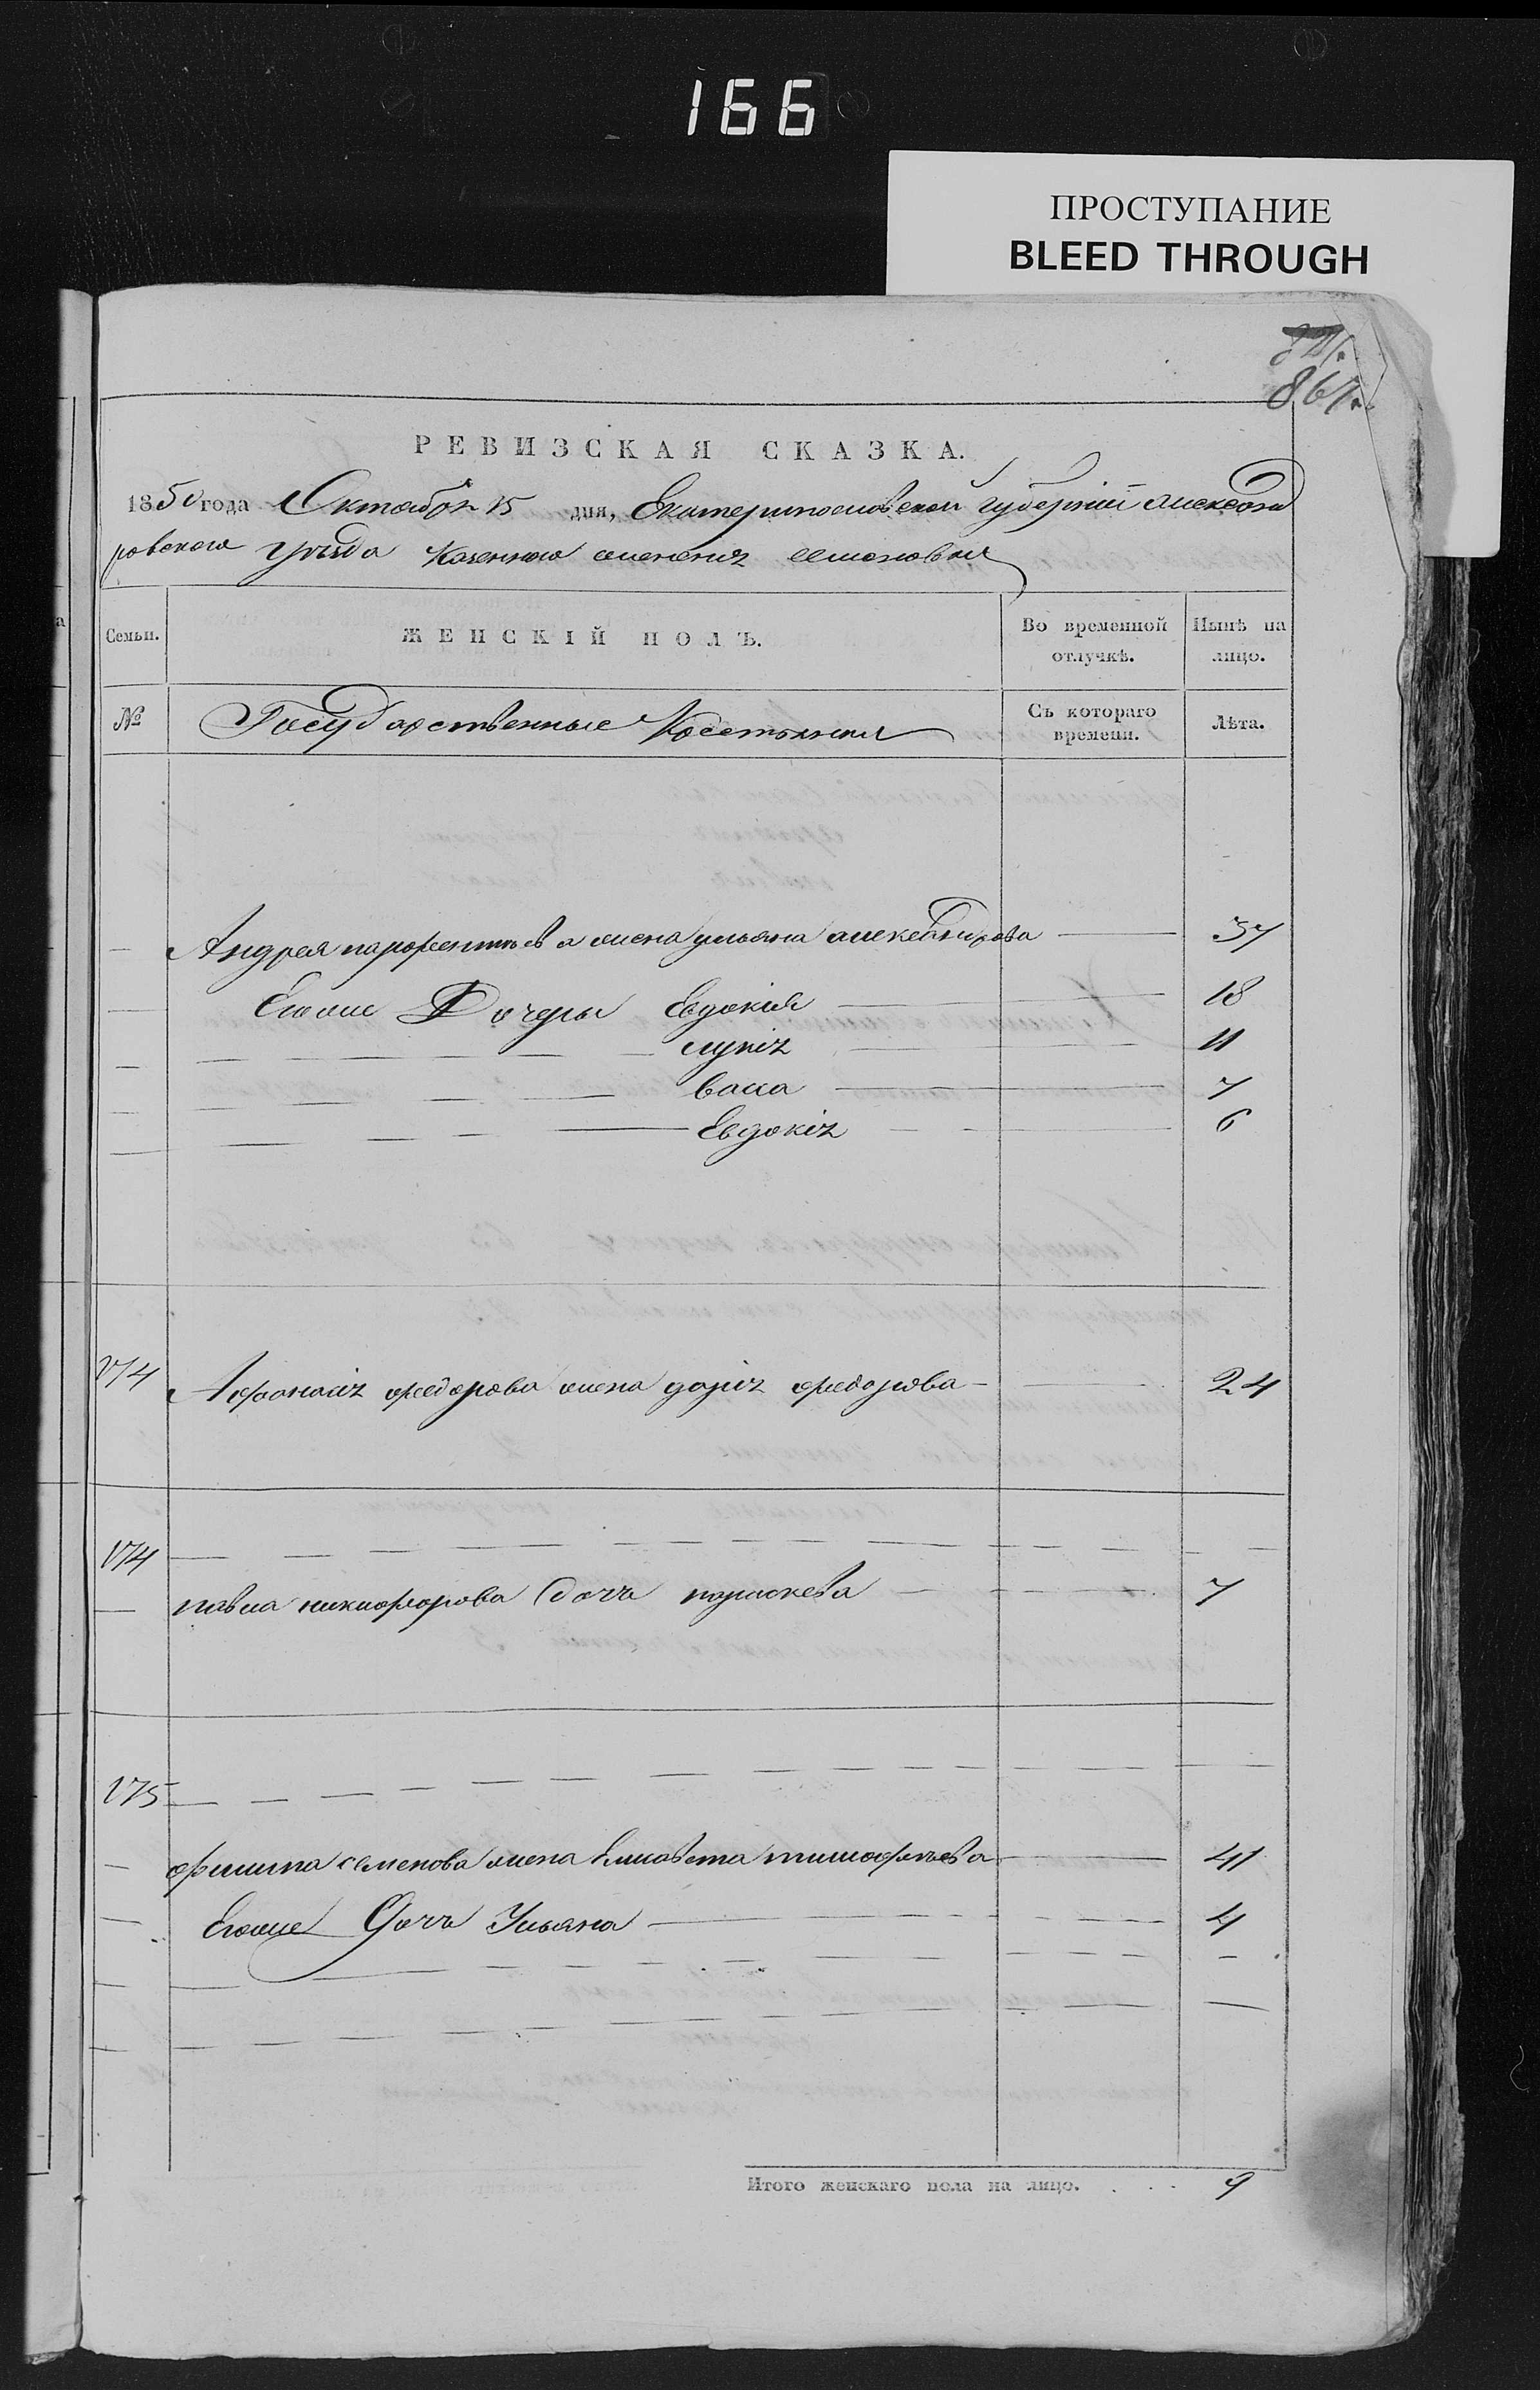 166
ПРОСТУПАНИЕ
BLEED THROUGH
861.
РЕВИЗСКАЯ СКАЗКА.
1850 года Октября 15 дня, Екатеринославской губернии александ
ровского уезда Казенного имения
Семьи. ЖЕНСКІЙ ПОЛЪ. Во временной отлучкѣ. Нынѣ на лицо.
№ Государственные Крестьяне Съ котораго времени. Лѣта.
Андрея парфентьева жена ульяна александрова 37
Егоже Дочеры Евдокія 18
лукія 11
васса 7
Евдокія 6
174 Афонасія федорова жена дарія федорова 24
174
павла никифорова дочь параскева 7
175
филипа семенова жена Елисавета тимофеева 41
Егоже Дочь Ульяна 4
Итого женскаго пола на лицо. 9